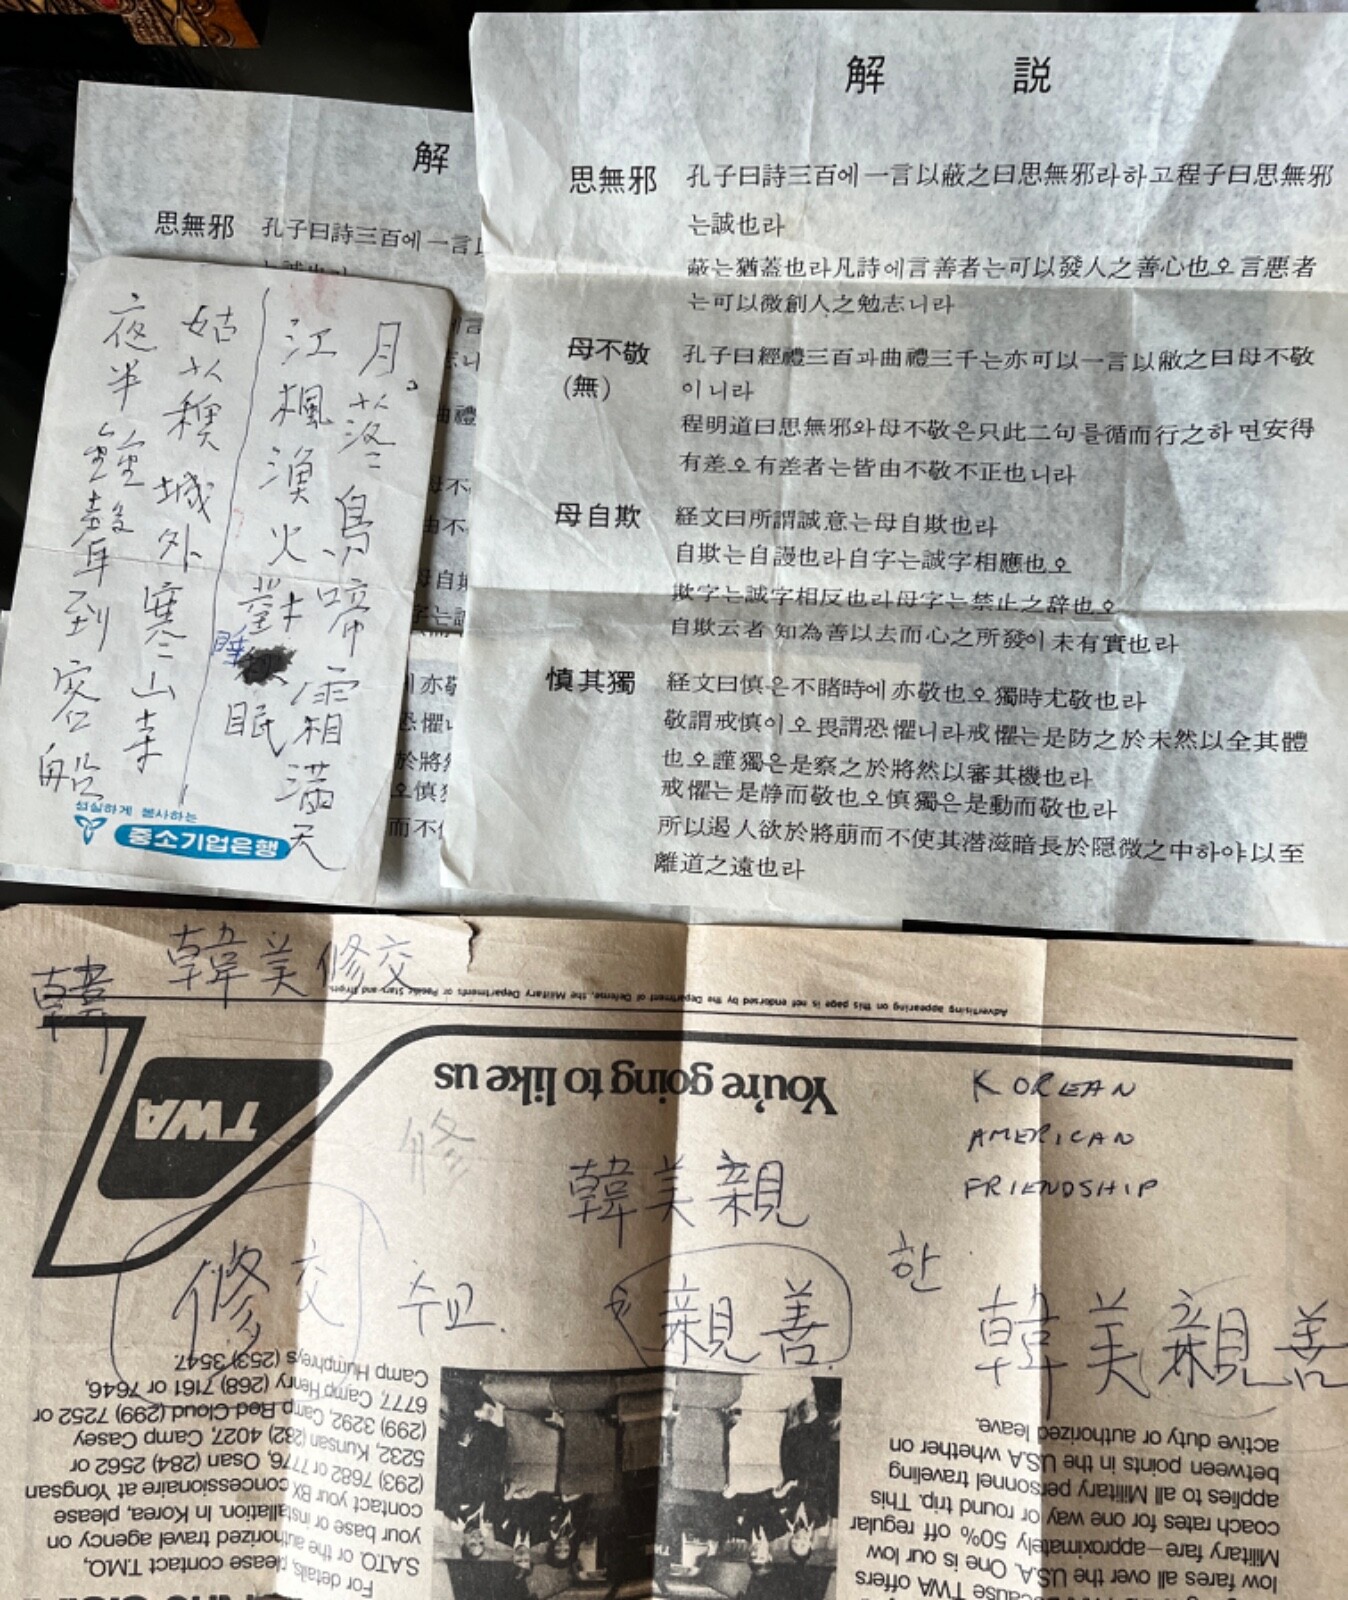 解 説
思無邪 孔子曰詩三百에 一言以蔽之曰思無邪라하고程子曰思無邪
는誠也라
蔽는猶蓋也라凡詩에言善者는可以發人之善心也오言悪者
는可以微創人之勉志니라
母不敬 孔子曰經禮三百과曲禮三千는亦可以一言以蔽之曰母不敬
(無) 이니라
程明道曰思無邪와母不敬은只此二句를循而行之하면安得
有差오有差者는皆由不敬不正也니라
母自欺 経文曰所謂誠意는母自欺也라
自欺는自謾也라自字는誠字相應也오
欺字는誠字相反也라母字는禁止之辞也오
自欺云者 知為善以去而心之所發이未有實也라
慎其獨 経文曰慎은不睹時에亦敬也오獨時尤敬也라
敬謂戒慎이오畏謂恐懼니라戒懼는是防之於未然以全其體
也오謹獨은是察之於將然以審其機也라
戒懼는是静而敬也오慎獨은是動而敬也라
所以遏人欲於將萠而不使其潜滋暗長於隠微之中하야以至
離道之遠也라
解
思無邪 孔子曰詩三百에 一言以
月落烏啼霜滿天
江楓漁火對
睡
眠
姑蘇城外寒山寺
夜半鐘聲到客船
성실하게 봉사하는
중소기업은행
韓美修交
韓
Advertising appearing on this page is not endorsed by the Department of Defense, the Military Departments or Pacific Stars and Stripes
TWA
You're going to like us
KOREAN
AMERICAN
FRIENDSHIP
修
韓美親
修交 수교.
親善.
한
韓美親善
because TWA offers
low fares all over the U.S.A. One is our low
Military fare—approximately 50% off regular
coach rates for one way or round trip. This
applies to all Military personnel traveling
between points in the U.S.A. whether on
active duty or authorized leave.
For details, please contact T.M.O.,
S.A.T.O. or the authorized travel agency on
your base or installation. In Korea, please
contact your BX concessionaire at Yongsan
(293) 7682 or 7776, Osan (284) 2562 or
5232, Kunsan (282) 4027, Camp Casey
(299) 3292, Camp Red Cloud (299) 7252 or
6777, Camp Henry (268) 7161 or 7646,
Camp Humphreys (253) 3547.